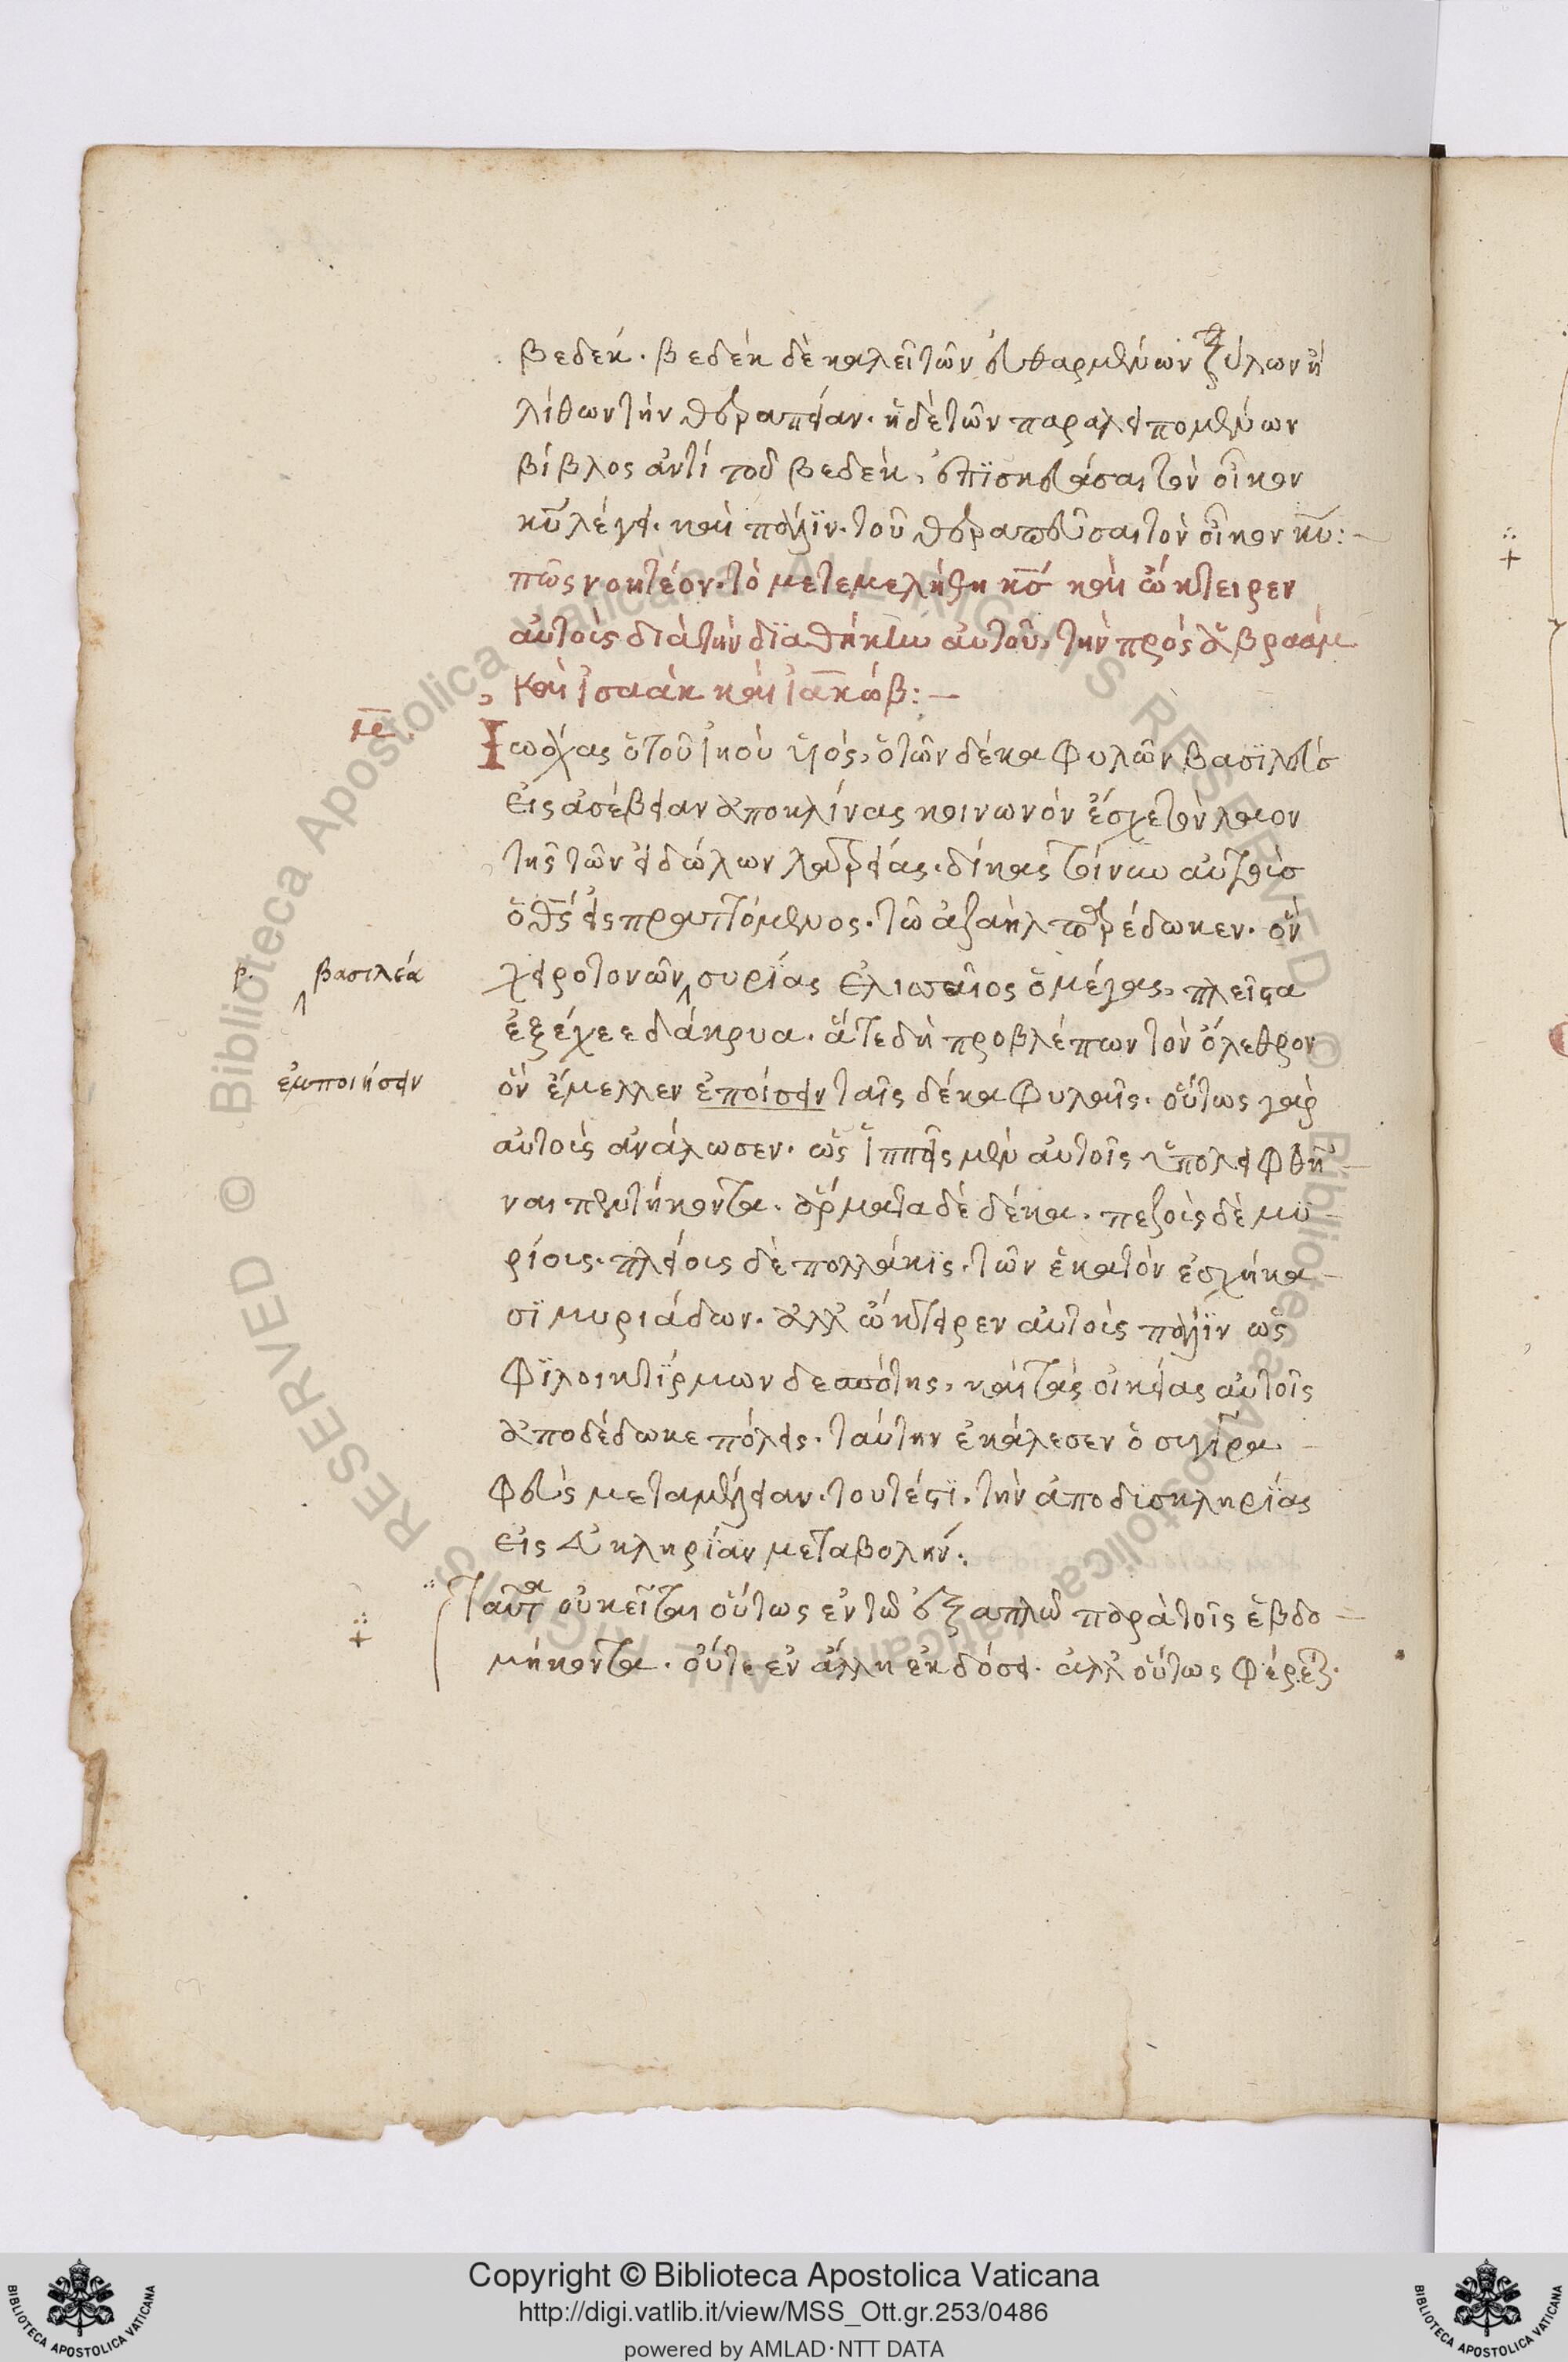 βεδεκ. βεδὲκ δὲ καλεῖ τῶν ἐφθαρμένων ξύλων ἢ
λίθων τὴν θεραπείαν. ἡ δὲ τῶν παραλειπομένων
βίβλος ἀντὶ τοῦ βεδὲκ, ἐπϊσκευάσαι τὸν οἶκον
κ̅υ̅ λέγει. καὶ πάλϊν. τοῦ θεραπεῦσαι τὸν οἶκον κ̅υ̅:-
πῶς νοητέον. τὸ μετεμελήθη κ̅σ̅ καὶ ὤκτειρεν
αὐτοὺς διὰ τὴν δϊαθήκην αὐτοῦ, τὴν πρὸς ἀβραὰμ
καὶ ἰσαὰκ καὶ ἰακώβ:-
με
Ἰωάχας ὁ τοῦ ἰηοὺ ὑιὸς, ὁ τῶν δέκα φυλῶν βασϊλεὺς
εἰς ἀσέβειαν ἀποκλίνας κοινωνὸν ἔσχε τὸν λαὸν
τῆς τῶν εἰδώλων λατρείας. δίκας τοίνυν αὐτοὺς
ὁ θ̅ς̅ εἰσπραττόμενος. τῶ ἀζαὴλ παρέδωκεν. ὃν
ρ. βασιλέα
χειροτονῶν συρίας ἐλισσαῖος ὁ μέγας, πλεῖστα
ἐξέχεε δάκρυα. ἅτε δὴ προβλέπων τὸν ὄλεθρον
ἐμποιήσειν
ὃν ἔμελλεν ἐποίσειν ταῖς δέκα φυλαῖς. οὕτως γὰρ
αὐτοὺς ἀνάλωσεν. ὡς ἵππεῖς μὲν αὐτοῖς ὑπολειφθῆ-
ναι πεντήκοντα. ἅρματα δὲ δέκα. πεζοὺς δὲ μϋ-
ρίους. πλείους δὲ πολλάκϊς. τῶν ἑκατὸν ἐσχήκα-
σϊ μυριάδων. ἀλλ' ὤκτειρεν αὐτοὺς πάλϊν ὡς
φϊλοικτίρμων δεσπότης, καὶ τὰς οἰκείας αὐτοῖς
ἀποδέδωκε πόλεις. ταύτην ἐκάλεσεν ὁ συγγρα-
φεὺς μεταμέλειαν. τουτέστϊ. τὴν ἀπὸ δϊσκληρίας
εἰς εὐκληρίαν μεταβολήν:.
Ταῦτα οὐ κεῖται οὕτως ἐν τῶ ἑξαπλῶ παρὰ τοῖς ἑβδο-
μήκοντα. οὔτε ἐν ἄλλη ἐκδόσει. ἀλλ' οὕτως φέρεται.
Copyright © Biblioteca Apostolica Vaticana
http://digi.vatlib.it/view/MSS_Ott.gr.253/0486
powered by AMLAD·NTT DATA